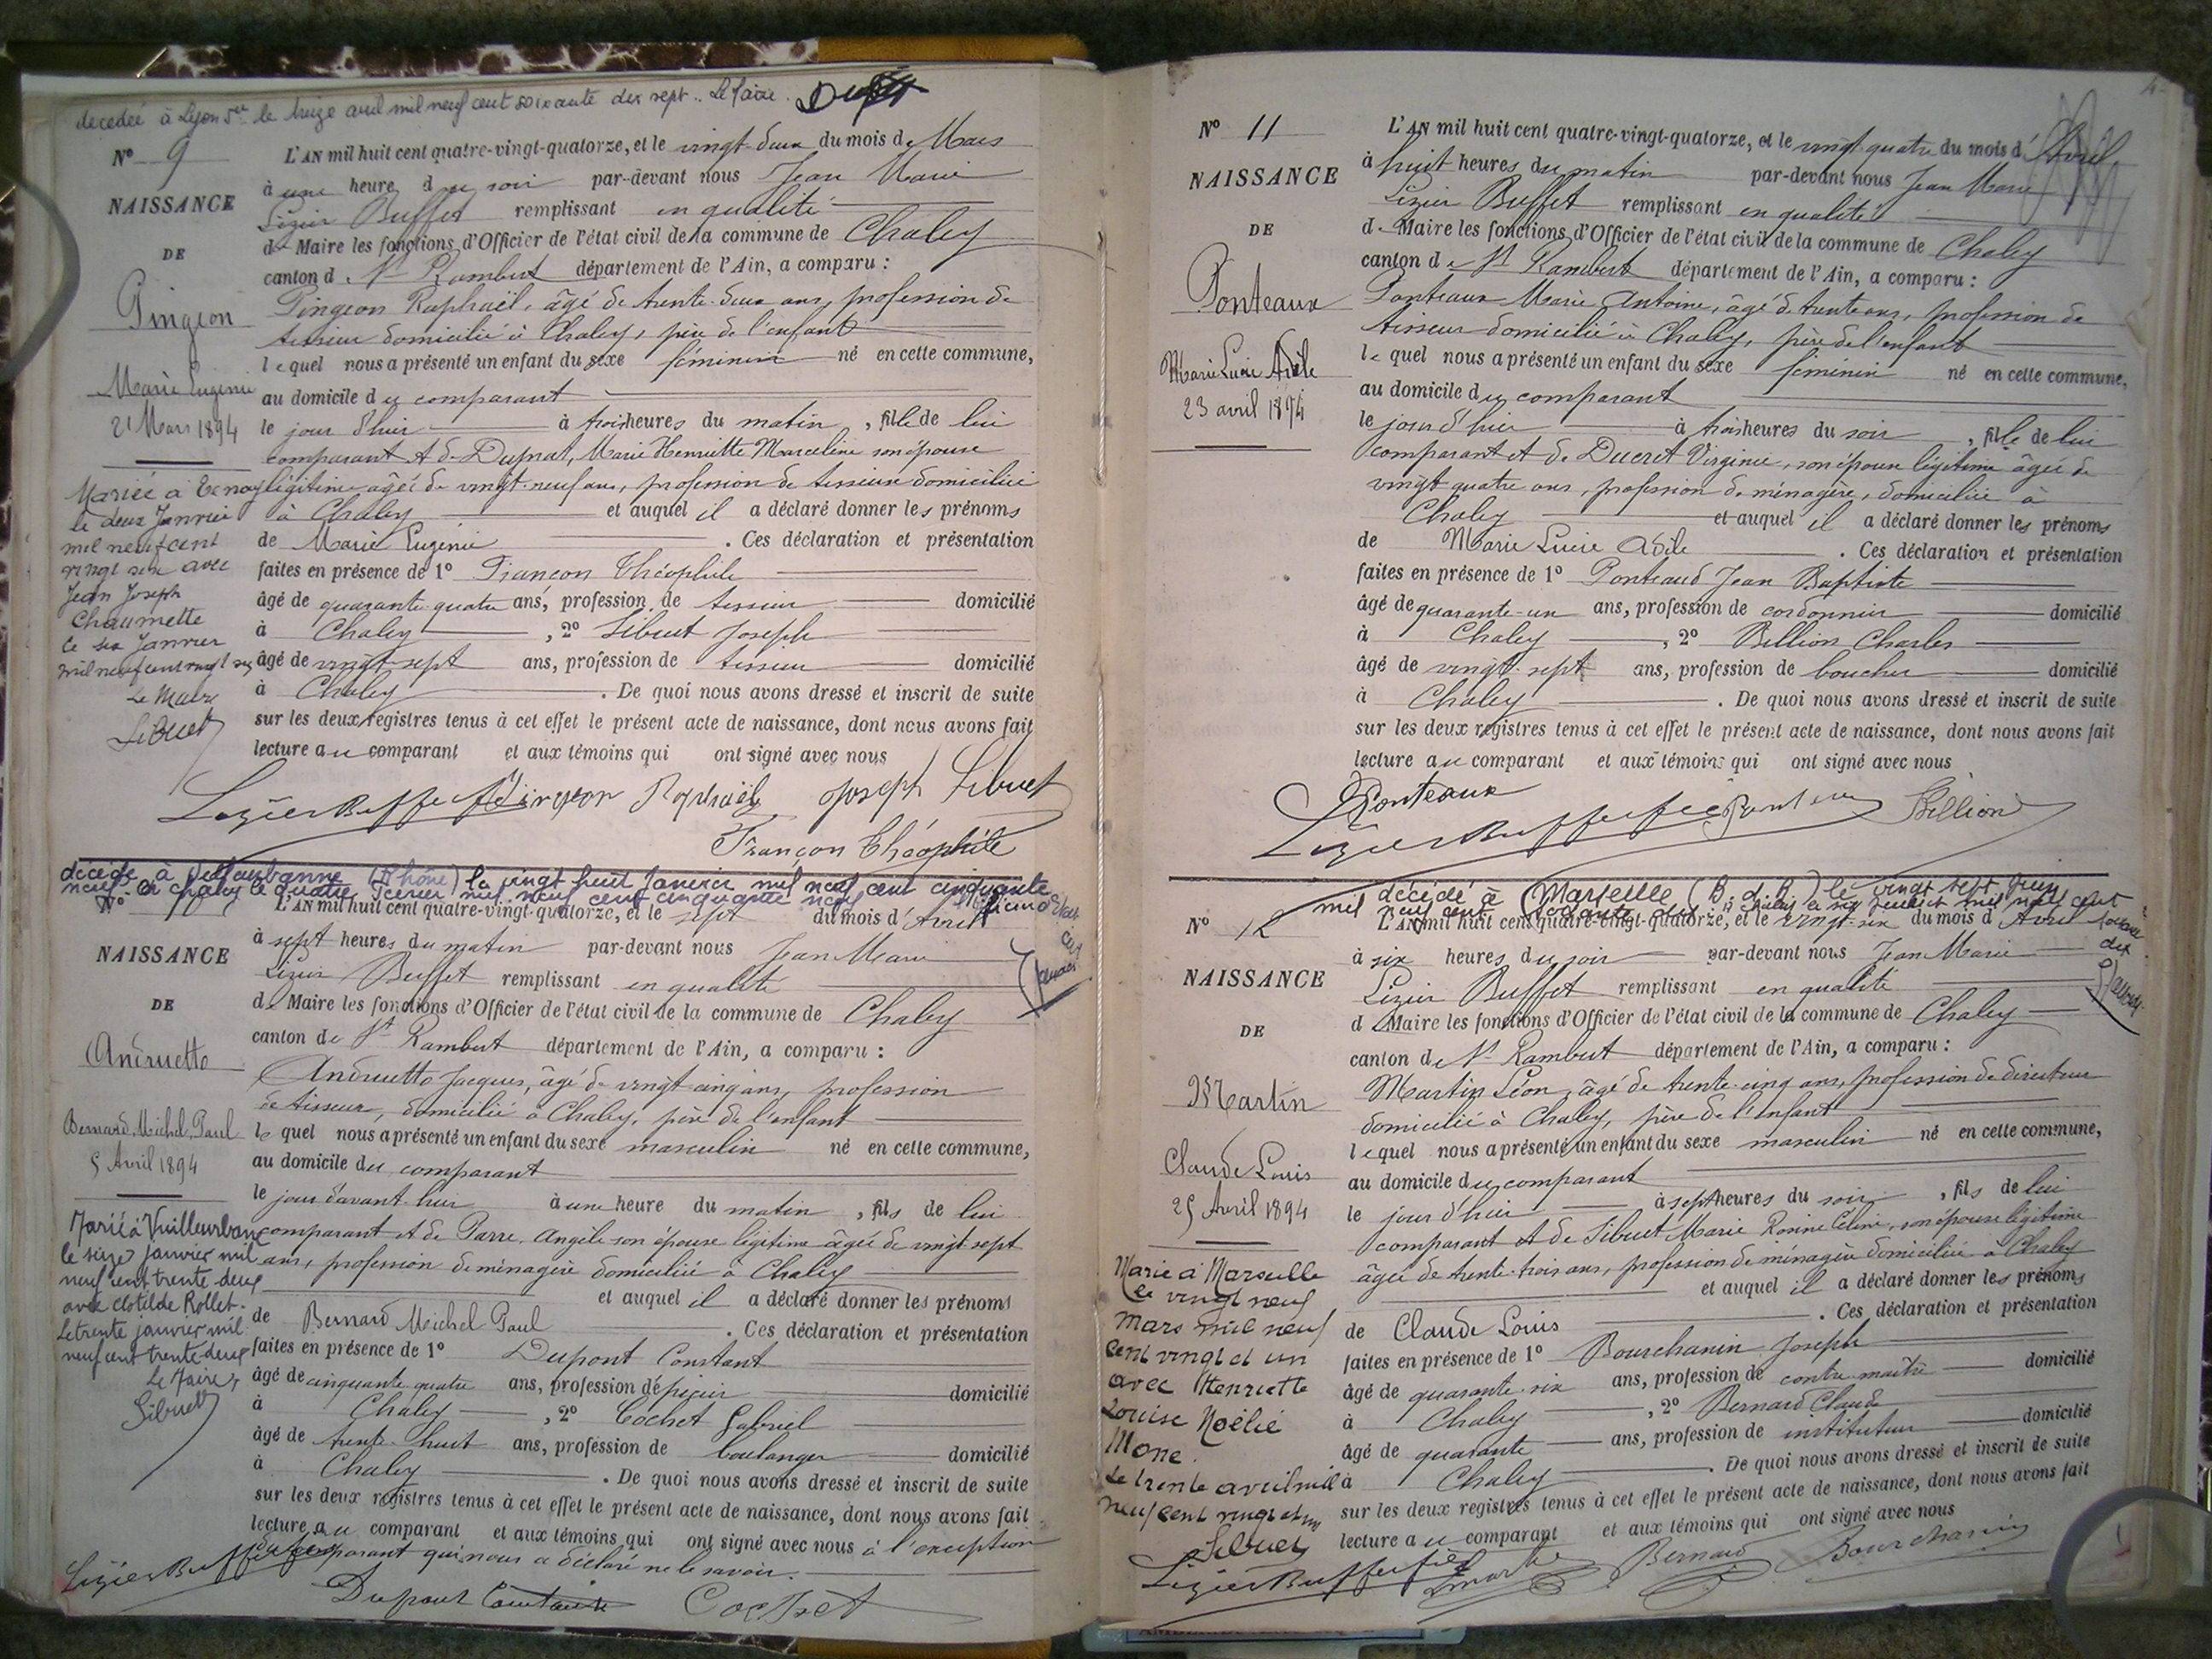 decedée à Lyon 5e le treize avril mil neuf cent soixante dix sept. Le Maire.
N° 9
NAISSANCE
DE
Pingeon
Marie Eugénie
21 Mars 1894
L'AN mil huit cent quatre-vingt-quatorze, et le vingt-deux du mois de Mars
à une heure du soir par-devant nous Jean Marie
Lizier Buffet remplissant en qualité
de Maire les fonctions d'Officier de l'état civil de la commune de Chaley
canton de St Rambert département de l'Ain, a comparu :
Pingeon Raphaël, âgé de trente-deux ans, profession de
tisseur domicilié à Chaley, père de l'enfant
lequel nous a présenté un enfant du sexe féminin né en cette commune,
au domicile du comparant
le jour d'hier à trois heures du matin, fille de lui
comparant et de Duprat, Marie Henriette Marceline son épouse
légitime âgée de vingt-neuf ans, profession de tisseuse domiciliée
à Chaley et auquel il a déclaré donner les prénoms
de Marie Eugénie. Ces déclaration et présentation
faites en présence de 1° Françon Théophile
âgé de quarante-quatre ans, profession de tisseur domicilié
à Chaley, 2° Sibuet Joseph
âgé de vingt-sept ans, profession de tisseur domicilié
à Chaley. De quoi nous avons dressé et inscrit de suite
sur les deux registres tenus à cet effet le présent acte de naissance, dont nous avons fait
lecture au comparant et aux témoins qui ont signé avec nous
Lizier Buffet Pingeon Raphaël Joseph Sibuet
Françon Théophile
Mariée à Tenay
le deux Janvier
mil neuf cent
vingt six avec
Jean Joseph
Chaumette
Le six Janvier
mil neuf cent vingt six
Le Maire
Sibuet
décédé à Villeurbanne (Rhône) le vingt huit Janvier mil neuf cent cinquante
neuf. à Chaley le quatre février mil neuf cent cinquante neuf
N°
NAISSANCE
DE
Andruetto
Bernard Michel Paul
5 Avril 1894
L'AN mil huit cent quatre-vingt-quatorze, et le sept du mois d'Avril
à sept heures du matin par-devant nous Jean Marie
Lizier Buffet remplissant en qualité
de Maire les fonctions d'Officier de l'état civil de la commune de Chaley
canton de St Rambert département de l'Ain, a comparu :
Andruetto Jacques, âgé de vingt cinq ans, profession
de tisseur, domicilié à Chaley, père de l'enfant
lequel nous a présenté un enfant du sexe masculin né en cette commune,
au domicile du comparant
le jour d'avant-hier à une heure du matin, fils de lui
comparant et de Parre Angèle son épouse légitime âgée de vingt sept
ans, profession de ménagère domiciliée à Chaley
et auquel il a déclaré donner les prénoms
de Bernard Michel Paul. Ces déclaration et présentation
faites en présence de 1° Dupont Constant
âgé de cinquante quatre ans, profession de domicilié
à Chaley, 2° Cochet Gabriel
âgé de trente-huit ans, profession de boulanger domicilié
à Chaley. De quoi nous avons dressé et inscrit de suite
sur les deux registres tenus à cet effet le présent acte de naissance, dont nous avons fait
lecture au comparant et aux témoins qui ont signé avec nous à l'exception
du comparant qui nous a déclaré ne le savoir.
Lizier Buffet
Dupont Constant Cochet
Marié à Villeurbanne
le seize janvier mil
neuf cent trente deux
avec Clotilde Rollet.
Le trente janvier mil
neuf cent trente deux
Le Maire,
Sibuet
N° 11
NAISSANCE
DE
Ponteaux
Marie Lucie Adèle
23 avril 1894
L'AN mil huit cent quatre-vingt-quatorze, et le vingt quatre du mois d'Avril
à huit heures du matin par-devant nous Jean Marie
Lizier Buffet remplissant en qualité
de Maire les fonctions d'Officier de l'état civil de la commune de Chaley
canton de St Rambert département de l'Ain, a comparu :
Ponteaux Marie Antoine, âgé de trente ans, profession de
tisseur domicilié à Chaley, père de l'enfant
lequel nous a présenté un enfant du sexe féminin né en cette commune,
au domicile du comparant
le jour d'hier à trois heures du soir, fille de lui
comparant et de Ducret Virginie, son épouse légitime âgée de
vingt quatre ans, profession de ménagère, domiciliée à
Chaley et auquel il a déclaré donner les prénoms
de Marie Lucie Adèle. Ces déclaration et présentation
faites en présence de 1° Ponteaud Jean Baptiste
âgé de quarante-un ans, profession de cordonnier domicilié
à Chaley, 2° Billion Charles
âgé de vingt-sept ans, profession de boucher domicilié
à Chaley. De quoi nous avons dressé et inscrit de suite
sur les deux registres tenus à cet effet le présent acte de naissance, dont nous avons fait
lecture au comparant et aux témoins qui ont signé avec nous
Ponteaux
Lizier Buffet Billion
décédé à Marseille (B.d.R.) le vingt sept Juin
mil neuf cent
N° 12
NAISSANCE
DE
Martin
Claude Louis
25 Avril 1894
L'AN mil huit cent quatre-vingt-quatorze, et le vingt-six du mois d'Avril
à six heures du soir par-devant nous Jean Marie
Lizier Buffet remplissant en qualité
de Maire les fonctions d'Officier de l'état civil de la commune de Chaley
canton de St Rambert département de l'Ain, a comparu :
Martin Léon, âgé de trente-cinq ans, profession de directeur
domicilié à Chaley, père de l'enfant
lequel nous a présenté un enfant du sexe masculin né en cette commune,
au domicile du comparant
le jour d'hier à sept heures du soir, fils de lui
comparant et de Sibuet Marie Rosine Céline, son épouse légitime
âgée de trente-trois ans, profession de ménagère domiciliée à Chaley
et auquel il a déclaré donner les prénoms
de Claude Louis. Ces déclaration et présentation
faites en présence de 1° Bourchanin Joseph
âgé de quarante-six ans, profession de contre maître domicilié
à Chaley, 2° Bernard Claude
âgé de quarante ans, profession de instituteur domicilié
à Chaley. De quoi nous avons dressé et inscrit de suite
sur les deux registres tenus à cet effet le présent acte de naissance, dont nous avons fait
lecture au comparant et aux témoins qui ont signé avec nous
Lizier Buffet Bernard Bourchanin
Marié à Marseille
le vingt neuf
Mars mil neuf
cent vingt et un
avec Henriette
Louise Noëlie
Mone.
Le trente avril mil
neuf cent vingt et un
Sibuet